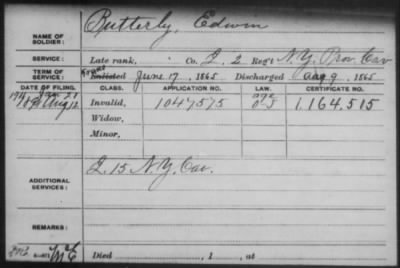 Butterly, Edwin
NAME OF SOLDIER:
SERVICE: Late rank, Co. L, 2 Reg't N.Y. Prov. Cav
TERM OF SERVICE: Enlisted June 17, 1865 Discharged Aug 9, 1865
DATE OF FILING. CLASS. APPLICATION NO. LAW. CERTIFICATE NO.
Invalid, 1047575 age 1,164,515
Aug 12
Widow,
Minor,
ADDITIONAL SERVICES: L. 15 N.Y. Cav.
REMARKS:
Died , 1 , at